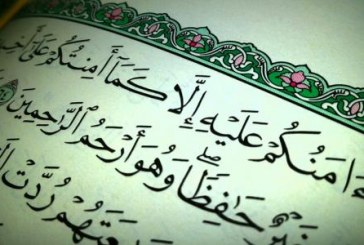 ءَامَنُكُمْ عَلَيْهِ إِلَّا كَمَآ أَمِنتُكُمْ عَلَىٰٓ
حَٰفِظًا ۖ وَهُوَ أَرْحَمُ ٱلرَّٰحِمِينَ
عَتَهُمْ رُدَّتْ